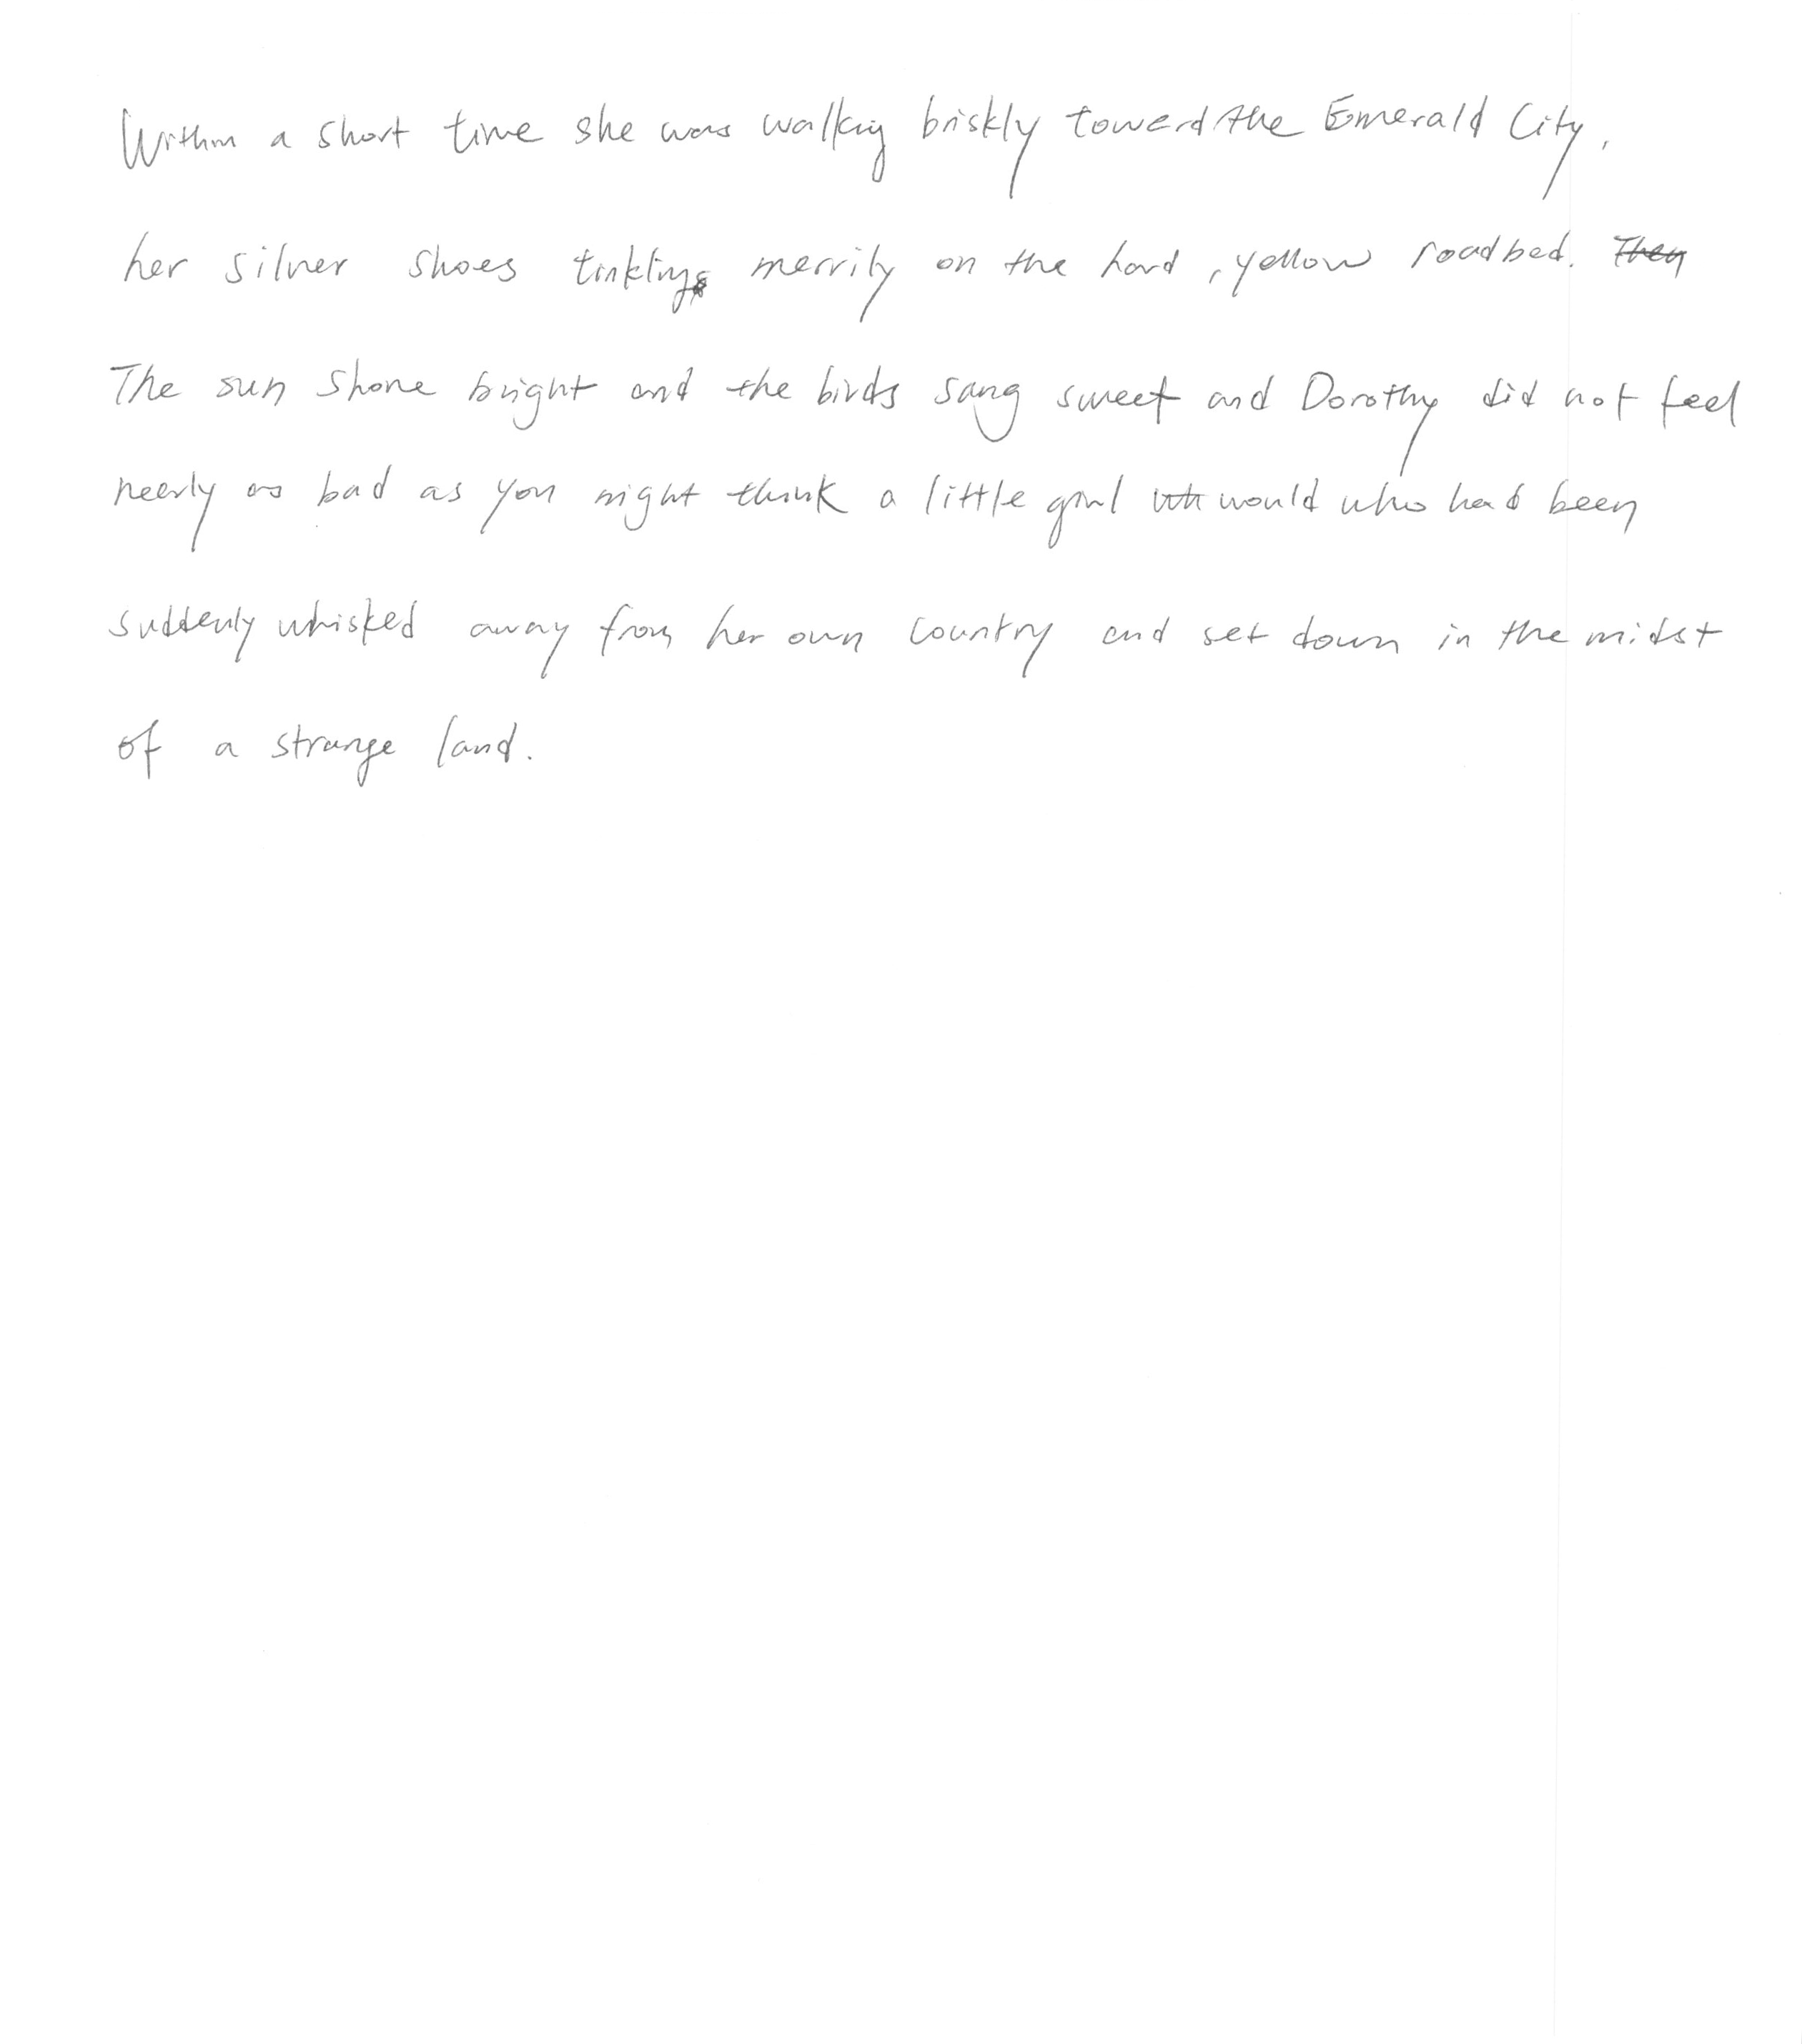 Within a short time she was walking briskly toward the Emerald City,
her silver shoes tinkling merrily on the hard, yellow roadbed. They
The sun shone bright and the birds sang sweet and Dorothy did not feel
nearly as bad as you might think a little girl wh would who had been
suddenly whisked away from her own country and set down in the midst
of a strange land.